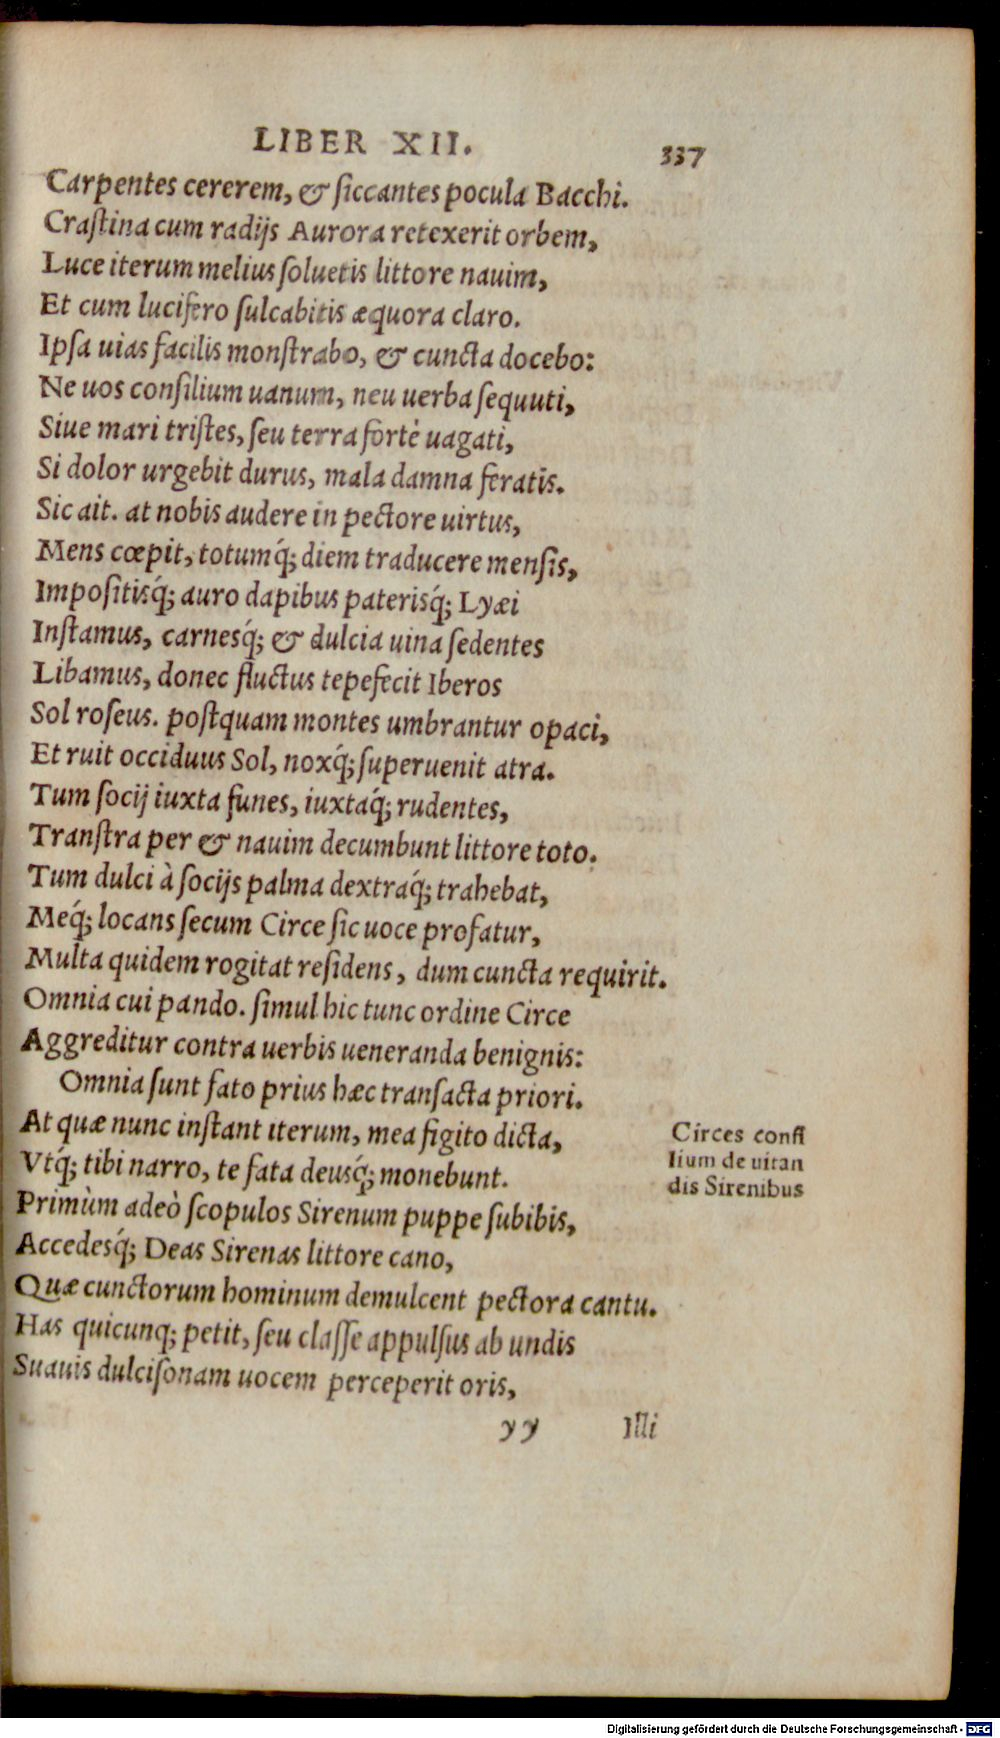 LIBER XII. 337
Carpentes cererem, & ſiccantes pocula Bacchi.
Craſtina cum radijs Aurora retexerit orbem,
Luce iterum melius ſoluetis littore nauim,
Et cum lucifero ſulcabitis æquora claro.
Ipſa uias facilis monſtrabo, & cuncta docebo:
Ne uos conſilium uanum, neu uerba ſequuti,
Siue mari triſtes, ſeu terra fortè uagati,
Si dolor urgebit durus, mala damna feratis.
Sic ait. at nobis audere in pectore uirtus,
Mens cœpit, totumq́; diem traducere menſis,
Impoſitisq́; auro dapibus paterisq́; Lyæi
Inſtamus, carnesq́; & dulcia uina ſedentes
Libamus, donec fluctus tepefecit Iberos
Sol roſeus. poſtquam montes umbrantur opaci,
Et ruit occiduus Sol, noxq́; ſuperuenit atra.
Tum ſocij iuxta funes, iuxtaq́; rudentes,
Tranſtra per & nauim decumbunt littore toto.
Tum dulci à ſocijs palma dextraq́; trahebat,
Meq́; locans ſecum Circe ſic uoce profatur,
Multa quidem rogitat reſidens, dum cuncta requirit.
Omnia cui pando. ſimul hic tunc ordine Circe
Aggreditur contra uerbis ueneranda benignis:
Omnia ſunt fato prius hæc tranſacta priori.
At quæ nunc inſtant iterum, mea figito dicta,
Vtq́; tibi narro, te fata deusq́; monebunt.
Primùm adeò ſcopulos Sirenum puppe ſubibis,
Accedesq́; Deas Sirenas littore cano,
Quæ cunctorum hominum demulcent pectora cantu.
Has quicunq; petit, ſeu claſſe appulſus ab undis
Suauis dulciſonam uocem perceperit oris,
yy Illi
Circes conſi
lium de uitan
dis Sirenibus
Digitalisierung gefördert durch die Deutsche Forschungsgemeinschaft - DFG